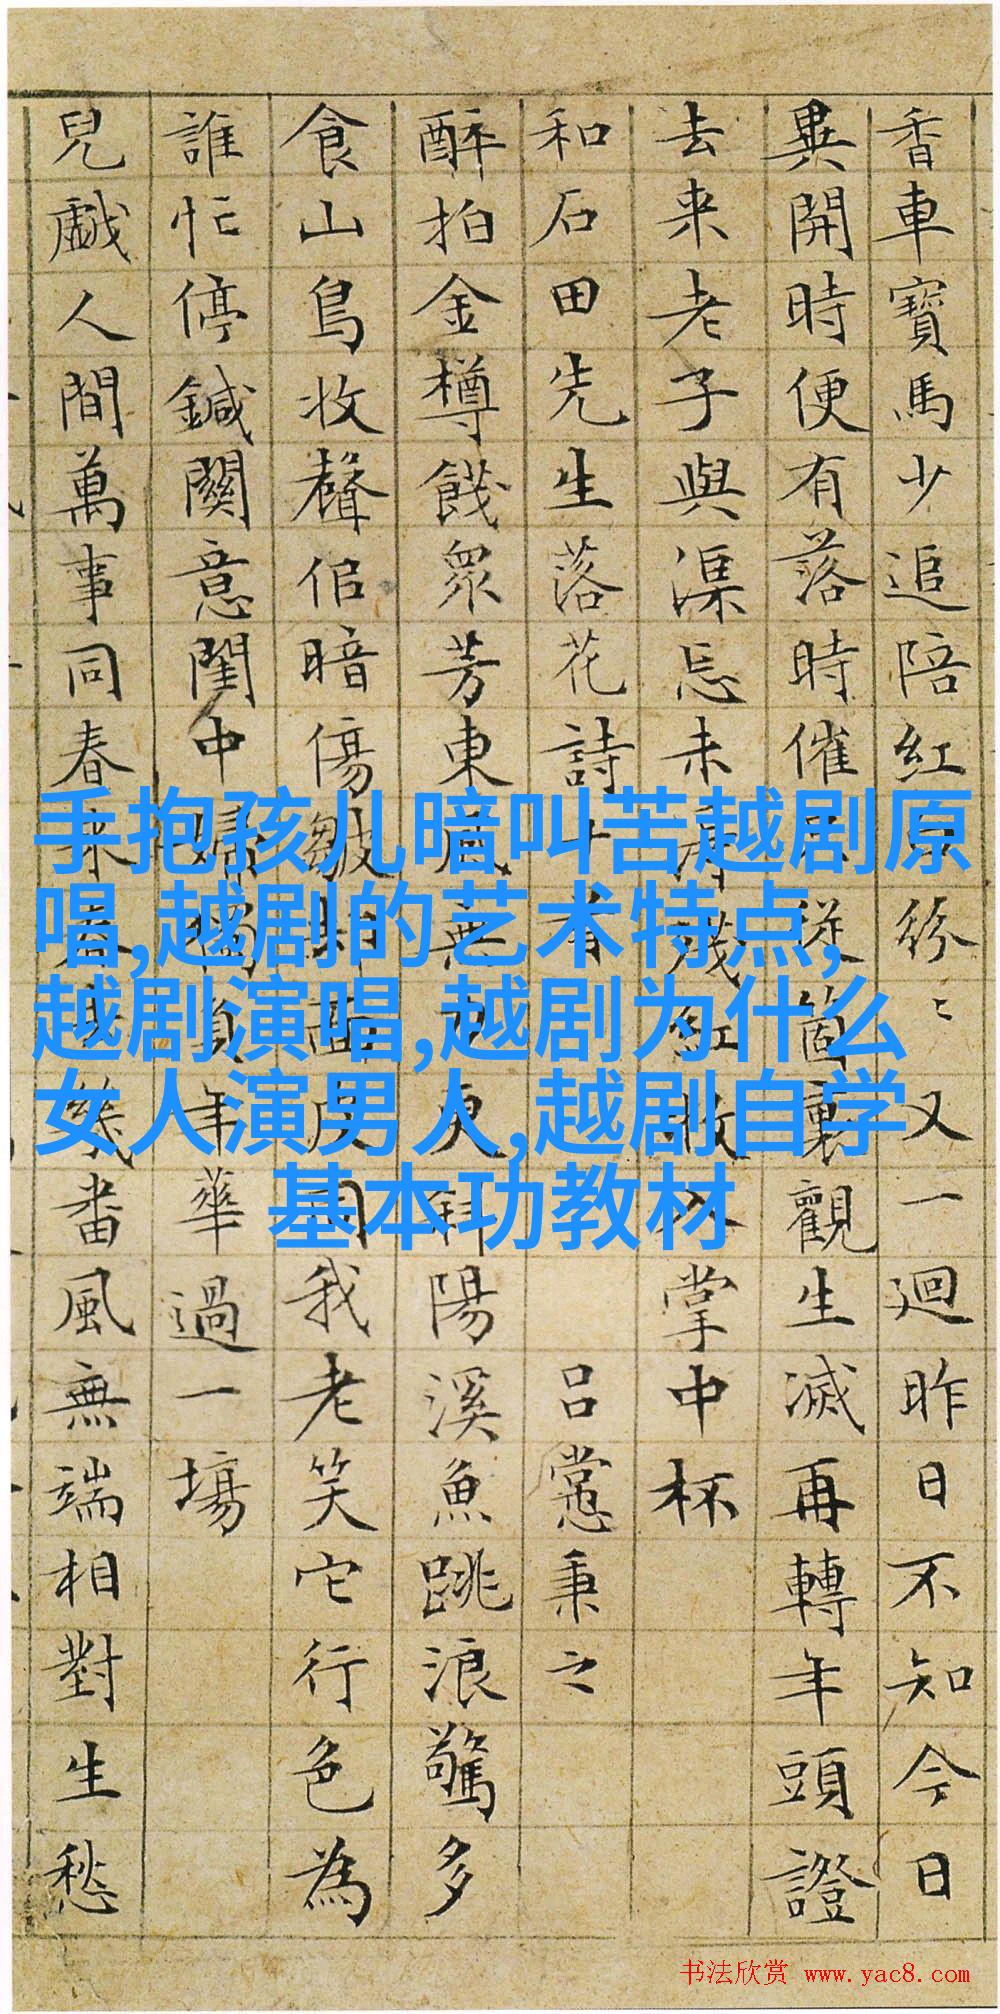 香車寶馬少追陪紅紛〻又一迴昨日不知今日
異開時便有落時催從箇裏觀生滅再轉年頭證
去来老子與渠忘未殘紅收入掌中杯
和石田先生落花詩十首 吕秉之
醉拍金樽餞衆芳東風無更斜陽溪魚跳浪驚多
食山鳥收聲倍暗傷皺面皮同我老笑它行色為
誰忙停鍼關意閨中婦獨負年華過一場
兒戲人間萬事同春来春去幾番風無端相對生愁
手抱孩儿暗叫苦越剧原
唱,越剧的艺术特点,
越剧演唱,越剧为什么
女人演男人,越剧自学
基本功教材
书法欣赏 www.yac8.com